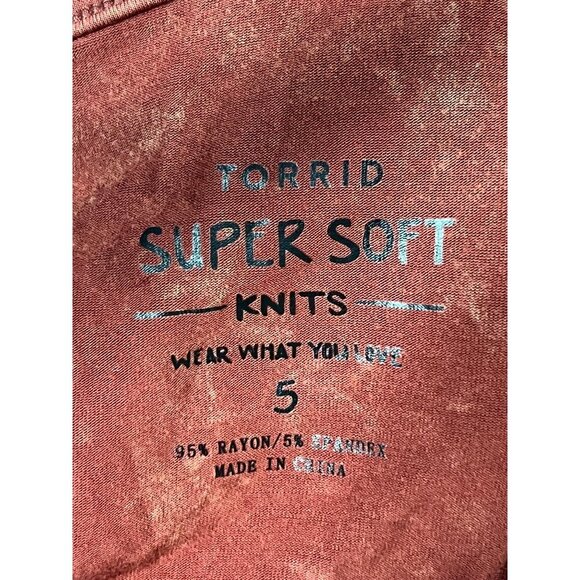 TORRID
SUPER SOFT
KNITS
WEAR WHAT YOU LOVE
5
95% RAYON/5% SPANDEX
MADE IN CHINA